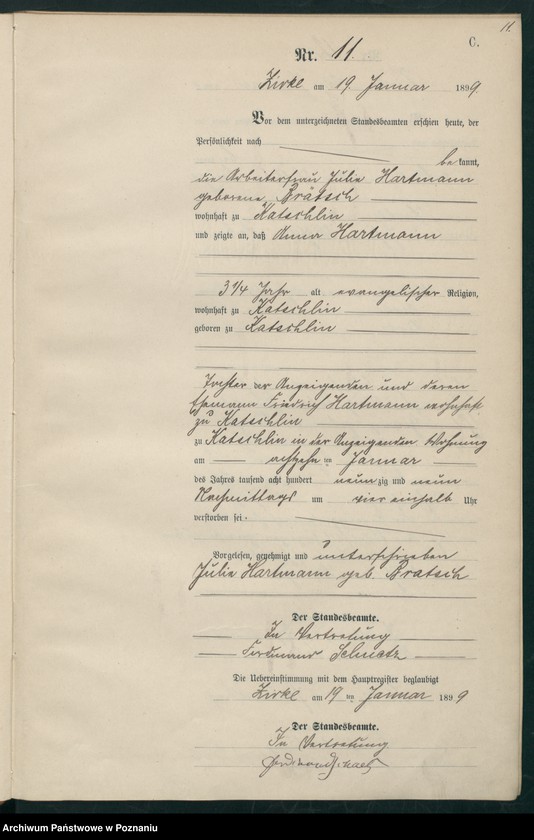 11.
C.
Nr. 11.
Zirke am 19 Januar 1899.
Vor dem unterzeichneten Standesbeamten erschien heute, der
Persönlichkeit nach
bekannt,
die Arbeiterfrau Julie Hartmann
geborene Brätsch
wohnhaft zu Katschlin
und zeigte an, daß Anna Hartmann
3 1/4 Jahr alt evangelischer Religion,
wohnhaft zu Katschlin
geboren zu Katschlin
Tochter der Anzeigenden und deren
Ehemann Friedrich Hartmann wohnhaft
zu Katschlin
zu Katschlin in der Anzeigenden Wohnung
am achzehn ten Januar
des Jahres tausend acht hundert neunzig und neun
Nachmittags um vier einhalb Uhr
verstorben sei.
Vorgelesen, genehmigt und unterschrieben
Julie Hartmann geb. Bratsch
Der Standesbeamte.
In Vertretung
Ferdinand
Die Uebereinstimmung mit dem Hauptregister beglaubigt
Zirke am 19 ten Januar 1899
Der Standesbeamte.
In Vertretung
Ferdinand
Archiwum Państwowe w Poznaniu